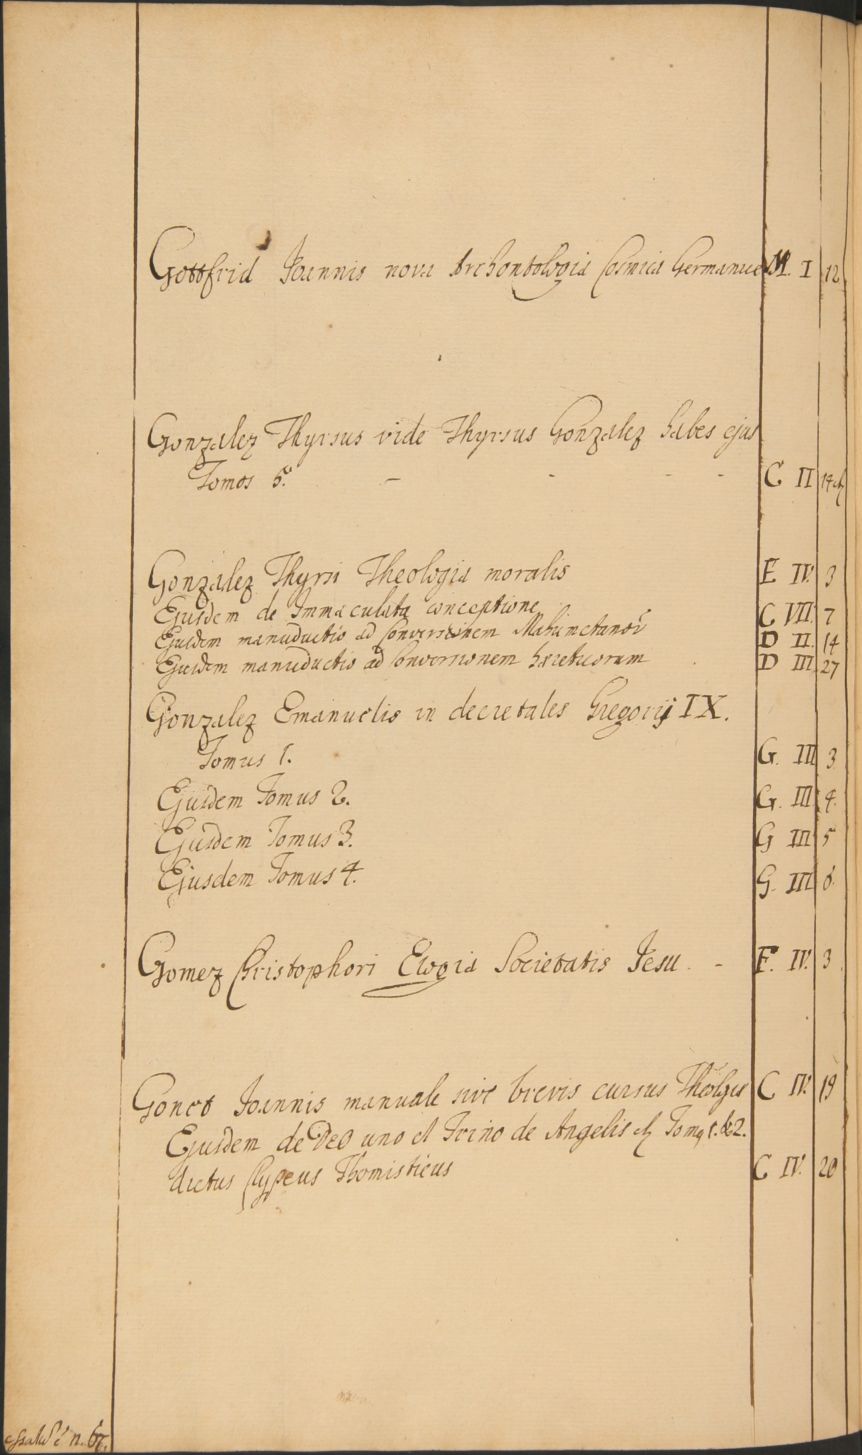 Gottfrid Joannis nova Archontologia Cosmica Germanice M. I 12
Gonzalez Thyrsus vide Thyrsus Gonzalez habes ejus
Tomos 5. - - - - C II 14
Gonzalez Thyrsi Theologia moralis E IV. 3
Ejusdem de Immaculata conceptione C VII. 7
Ejusdem manuductio ad Conversionem Mahumetanorū D II. 14
Ejusdem manuductio ad Conversionem hæreticorum D III 27
Gonzalez Emanuelis in decretales Gregorij IX.
Tomus 1. G. III 3
Ejusdem Tomus 2. G. III 4.
Ejusdem Tomus 3. G III 5
Ejusdem Tomus 4. G. III 6
Gomez Christophori Elogia Societatis Jesu. - F. IV. 3
Gonet Joannis manuale sive brevis cursus C IV. 19
Ejusdem de Deo uno et Trino de Angelis Tomq 1. & 2.
dictus Clypeus Thomisticus C IV. 20
n. 67.